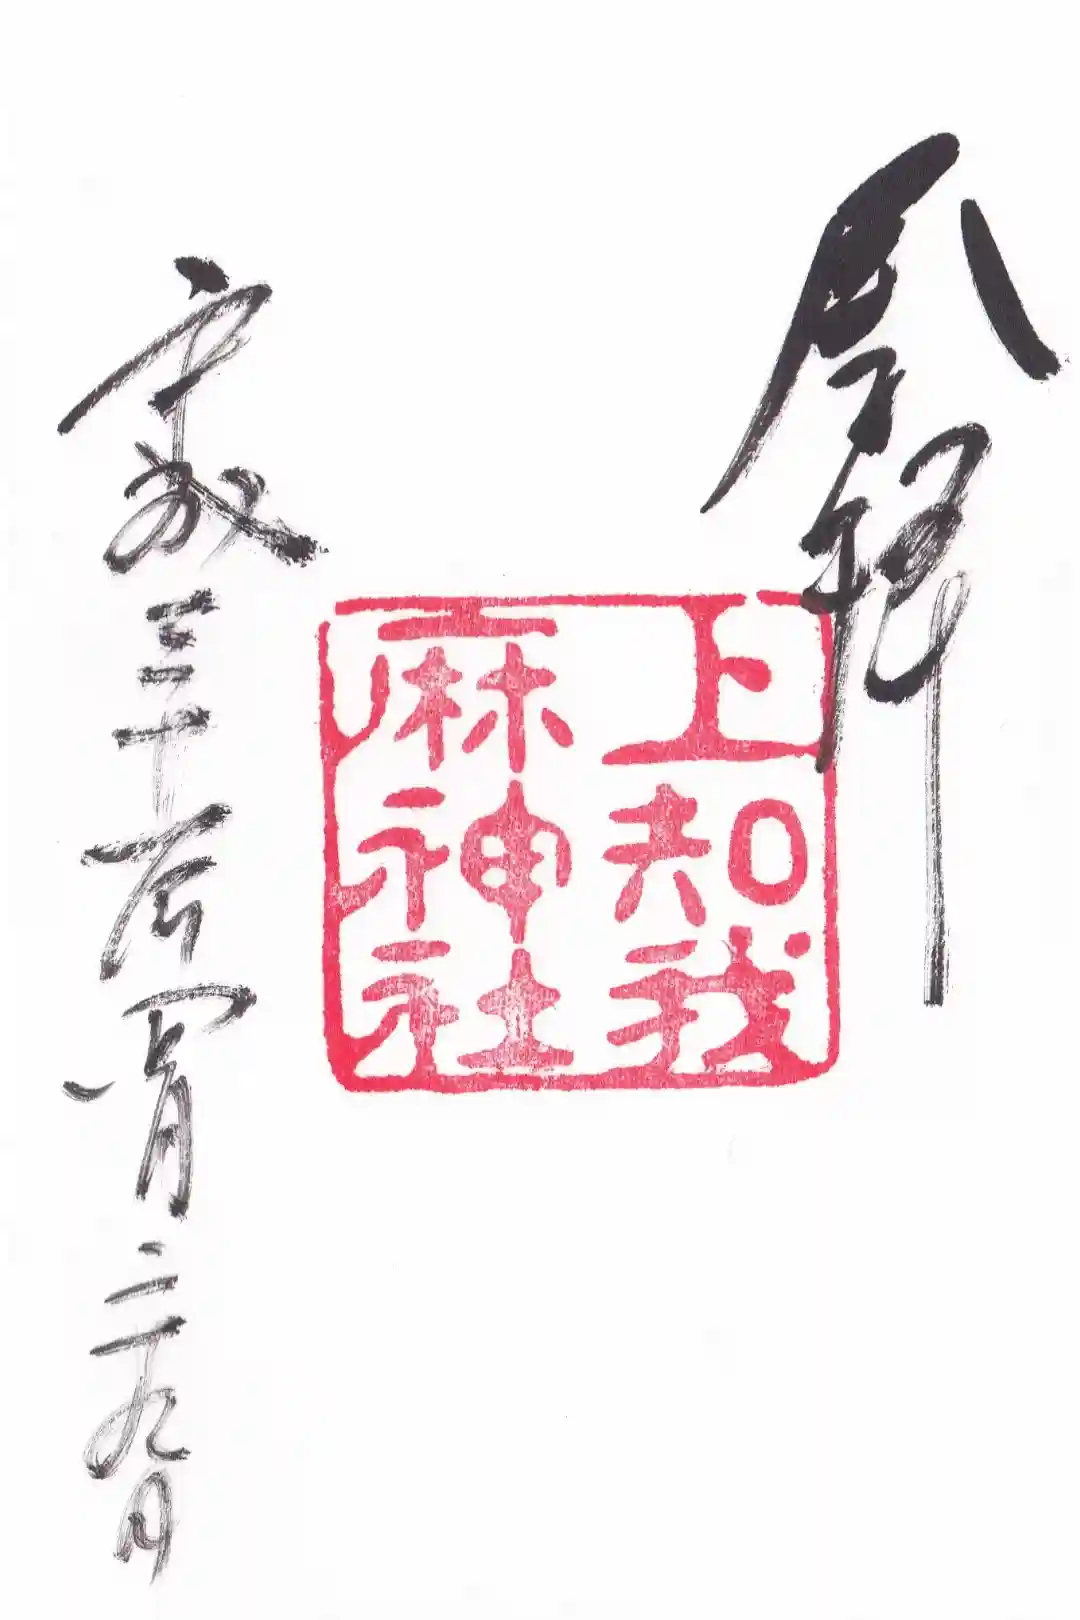 奉拝
上知我
麻神社
平成三十年四月二十九日